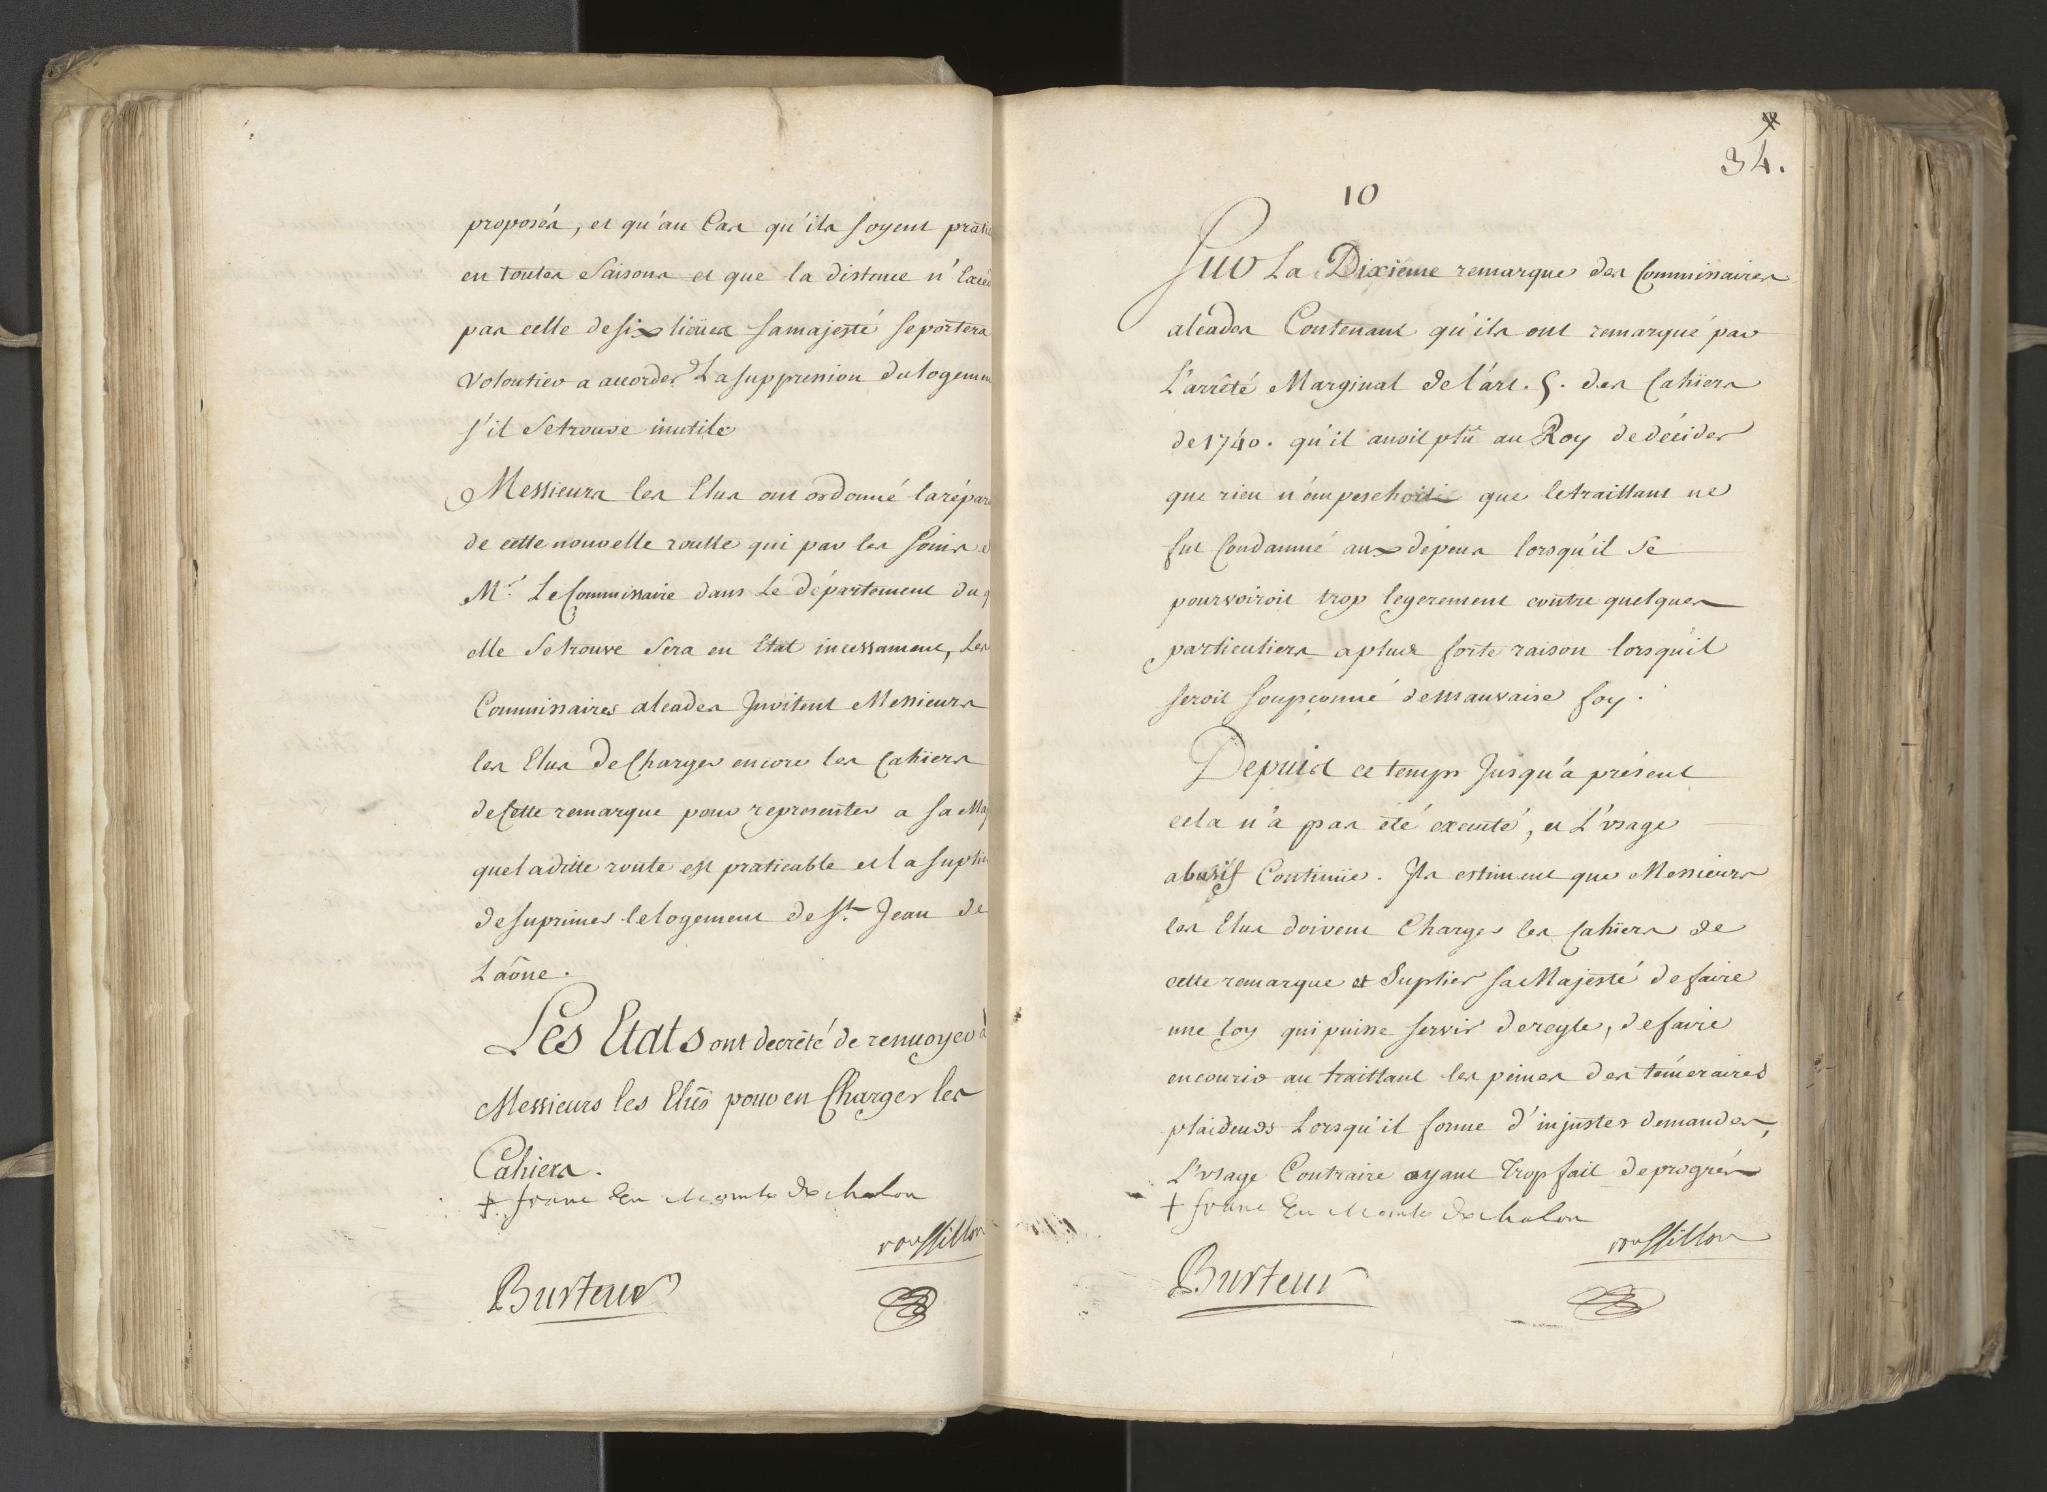 proposés, et qu'au Cas qu'ils soyent pratic
en toutes Saisons et que la distence n'Excéd
pas celle de six lieües sa majesté se portera
volontier a accorder La suppression du logemen
s'il Se trouve inutile
Messieurs les Elus ont ordonné la répar
de cette nouvelle routte qui par les soins d
Mr. Le Commissaire dans Le département du q
elle Se trouve Sera en Etat incessament, Les
Commissaires alcades Invitent Messieurs
les Elus de Charger encore les Cahiers
de Cette remarque pour representer a sa Maj
que ladite route est praticable et la suplie
de suprimer le logement de St. Jean de
Laône.
Les Etats ont decrété de renuoyer à
Messieurs les Elus pour en Charger les
Cahiers.
+ franc Eu de Chalon
roussillon
Burteur
34.
10
Sur La Dixieme remarque des Commissaires
alcades Contenant qu'ils ont remarqué par
L'arrêté Marginal de l'art. 5. des Cahiers
de 1740. qu'il auoit plû au Roy de décider
que rien n'empeschoit que le traittant ne
fut Condamné aux dépens lorsqu'il Se
pourvoiroit trop legerement contre quelques
particuliers a plus forte raison lorsqu'il
seroit soupçonné de mauvaise foy.
Depuis ce temps Jusqu'a présent
cela n'a pas été executé, et L'usage
abusif Continüe. Ils estiment que Messieurs
les Elus doivent Charger les Cahiers de
cette remarque et Suplier sa Majesté de faire
une loy qui puisse servir de regle, de faire
encourir au traittant les peines des témeraires
plaideurs Lorsqu'il forme d'injustes demandes,
L'usage Contraire ayant Trop fait de progrès
+ franc Eu de Chalon
roussillon
Burteur